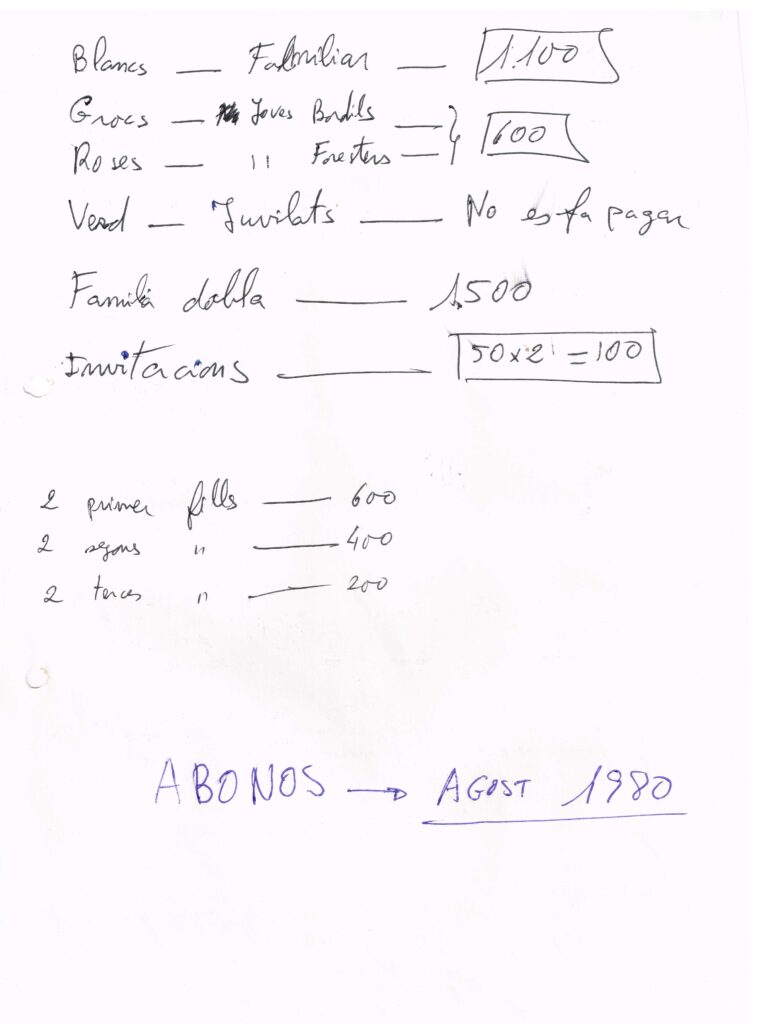 Blancs — Familiar — 1.100
Grocs — Joves Bordils — } 600
Roses — " Forasters —
Verd — Juvilats — No es fa pagar
Familia dobla — 1.500
Invitacions — 50 x 2 = 100
2 primer fills — 600
2 segons " — 400
2 terces " — 200
ABONOS → AGOST 1980